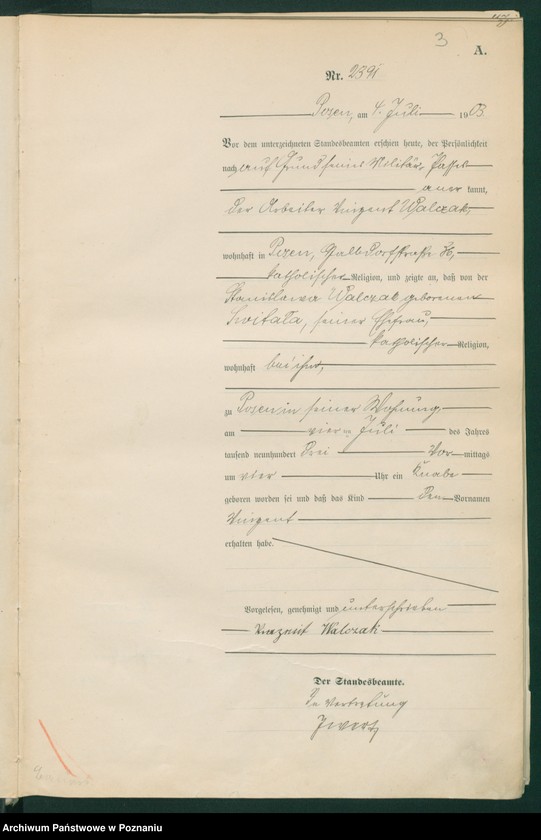 3
A.
Nr. 2391
Posen, am 4. Juli 1903
Vor dem unterzeichneten Standesbeamten erschien heute, der Persönlichkeit
nach auf Grund seines Militär Passes
aner kannt,
der Arbeiter Vinzent Walczak,
wohnhaft in Posen,
katholischer Religion, und zeigte an, daß von der
Stanislawa Walczak geborenen
Switala, seiner Ehefrau,
katholischer Religion,
wohnhaft bei ihm,
zu Posen in seiner Wohnung
am vier ten Juli des Jahres
tausend neunhundert drei Vor mittags
um vier Uhr ein Knabe
geboren worden sei und daß das Kind den Vornamen
Vinzent
erhalten habe.
Vorgelesen, genehmigt und unterschrieben
Walczak
Der Standesbeamte.
In Vertretung
Archiwum Państwowe w Poznaniu